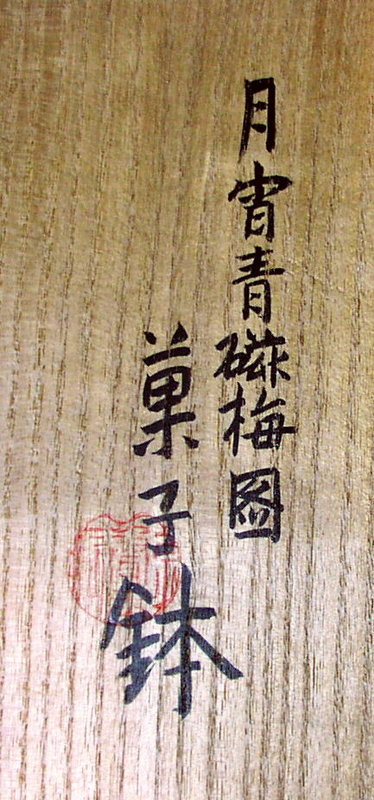 月宵青磁梅図
菓子鉢